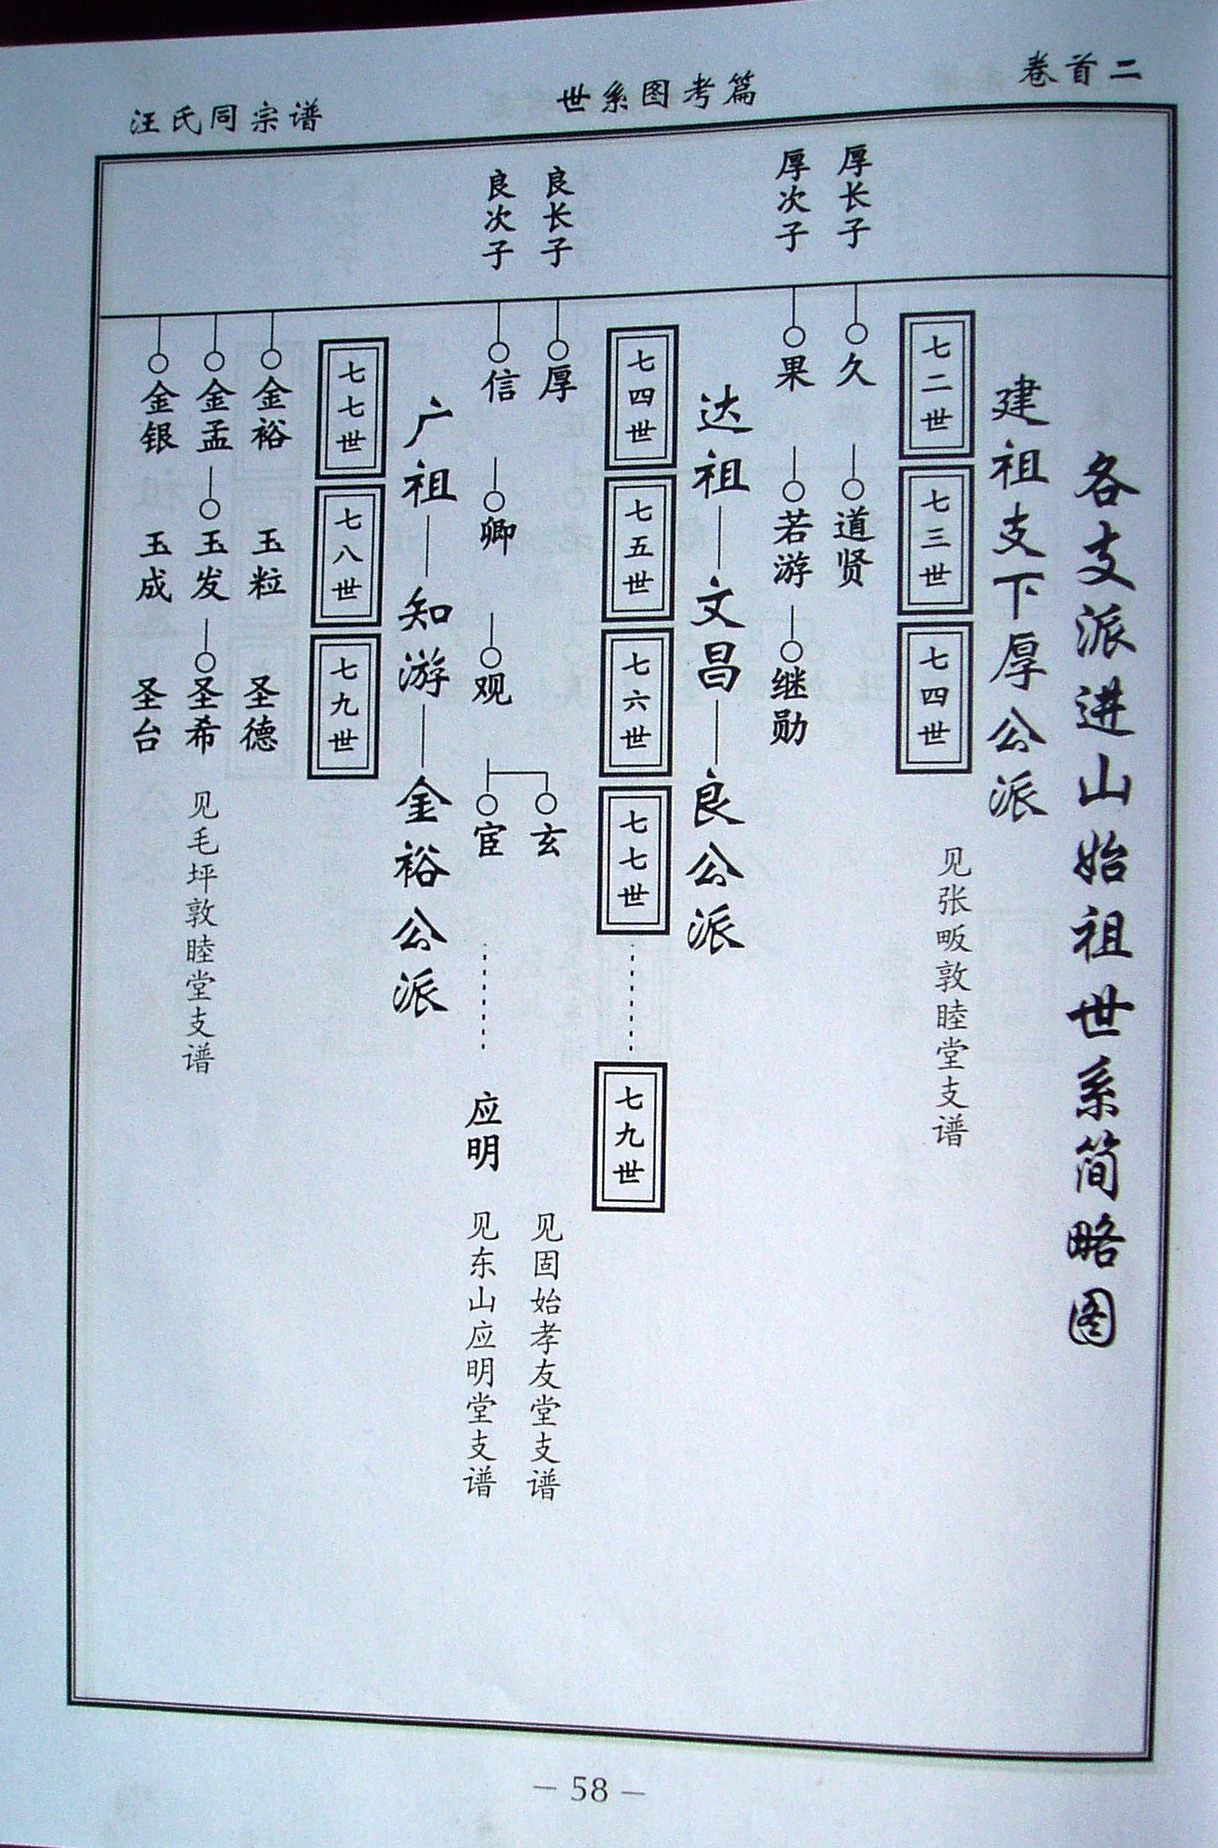 卷首二
世系图考篇
汪氏同宗谱
各支派进山始祖世系简略图
建祖支下厚公派
见张畈敦睦堂支谱
七二世
七三世
七四世
厚长子
久
道贤
厚次子
果
若游
继勋
达祖—文昌—良公派
七四世
七五世
七六世
七七世
七九世
良长子
厚
玄
见固始孝友堂支谱
良次子
信
卿
观
宦
应明
见东山应明堂支谱
广祖—知游—金裕公派
七七世
七八世
七九世
金裕
玉粒
圣德
金孟
玉发
圣希
见毛坪敦睦堂支谱
金银
玉成
圣台
— 58 —